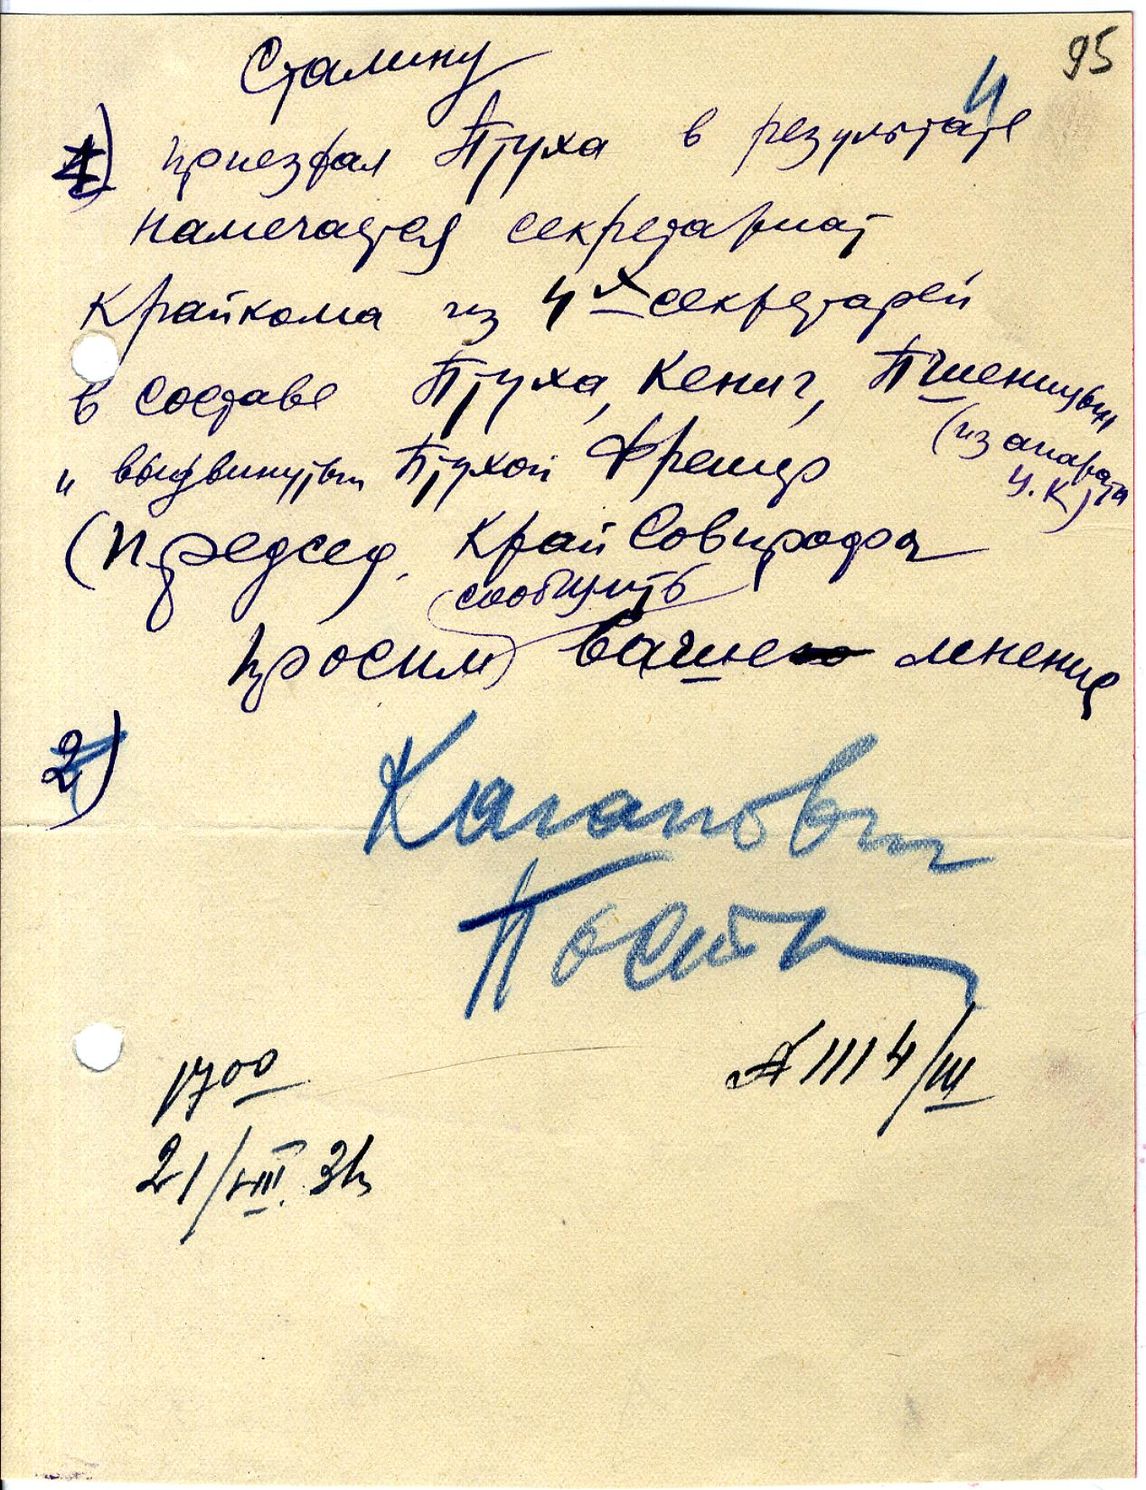 95
4
Сталину
1) приезжал Птуха в результате
намечается секретариат
Крайкома из 4х секретарей
в составе Птуха, Кениг, Пшеницын
(из апарата
Ц.К)
и выдвинутый Птухой Френцр
(Председ. КрайСовпрофа
сообщить
просим ваше мнение
2)
Каганович
Пост
17 00
21/VIII. 31
№ 1114/III